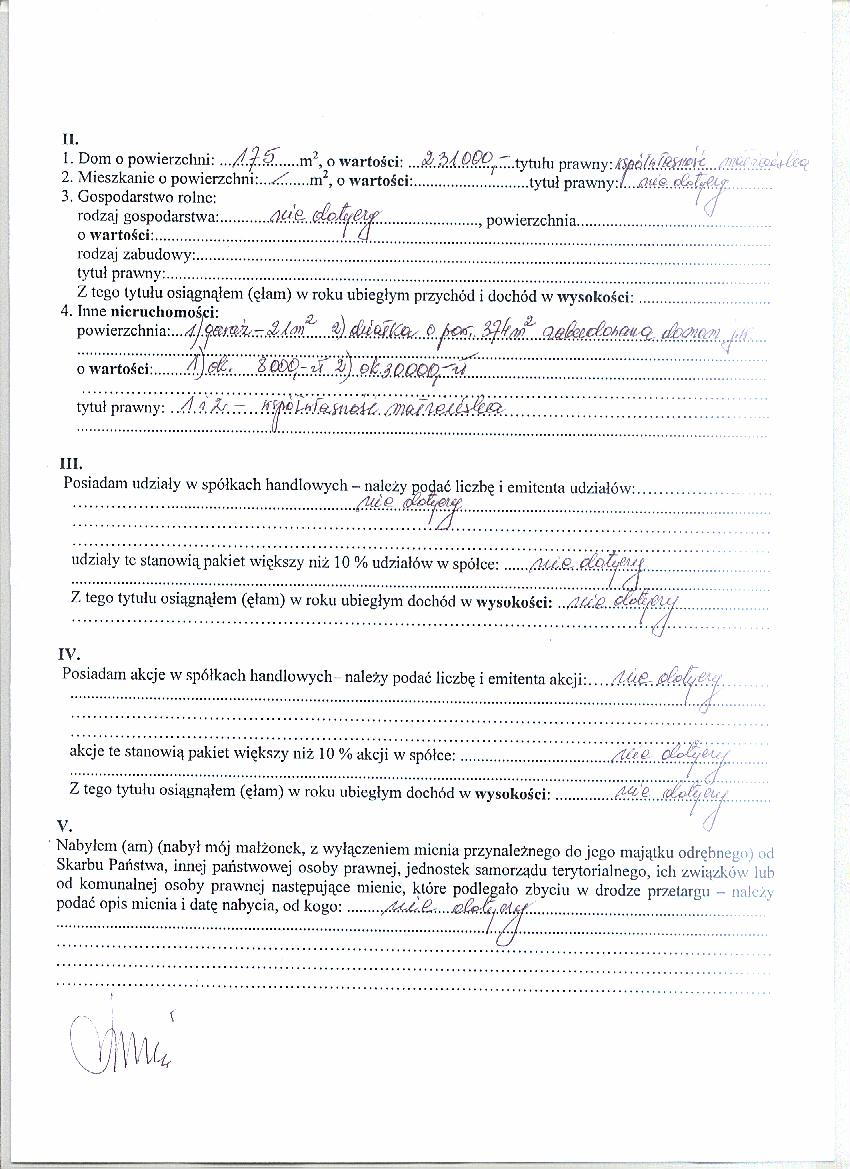 II.
1. Dom o powierzchni: ...175......m², o wartości: ...231000,-..tytułu prawny: współwłasność małżeńska
2. Mieszkanie o powierzchni:../......m², o wartości:........................tytuł prawny:/...nie dotyczy.........
3. Gospodarstwo rolne:
rodzaj gospodarstwa:...........nie dotyczy......................, powierzchnia..........................................
o wartości:..........................................................................
rodzaj zabudowy:..........................................................................
tytuł prawny:..........................................................................
Z tego tytułu osiągnąłem (ęłam) w roku ubiegłym przychód i dochód w wysokości: .............................
4. Inne nieruchomości:
powierzchnia:...1) garaż – 21m² 2) działka o pow. 374m² zabudowana domem
..........................................................................
o wartości:......1) ok. 8 000,- zł 2) ok 30000,- zł..............................
..........................................................................
tytuł prawny: ...1 i 2 – współwłasność małżeńska..............................
..........................................................................
III.
Posiadam udziały w spółkach handlowych – należy podać liczbę i emitenta udziałów:.........................
.......................................nie dotyczy.......................................
..........................................................................
..........................................................................
udziały te stanowią pakiet większy niż 10 % udziałów w spółce: ......nie dotyczy......................
..........................................................................
Z tego tytułu osiągnąłem (ęłam) w roku ubiegłym dochód w wysokości: ..nie dotyczy..................
..........................................................................
IV.
Posiadam akcje w spółkach handlowych – należy podać liczbę i emitenta akcji:....nie dotyczy..........
..........................................................................
..........................................................................
..........................................................................
akcje te stanowią pakiet większy niż 10 % akcji w spółce: ..............................nie dotyczy........
..........................................................................
Z tego tytułu osiągnąłem (ęłam) w roku ubiegłym dochód w wysokości: ............nie dotyczy........
V.
Nabyłem (am) (nabył mój małżonek, z wyłączeniem mienia przynależnego do jego majątku odrębnego) od
Skarbu Państwa, innej państwowej osoby prawnej, jednostek samorządu terytorialnego, ich związków lub
od komunalnej osoby prawnej następujące mienie, które podlegało zbyciu w drodze przetargu – należy
podać opis mienia i datę nabycia, od kogo: ........nie dotyczy..............................
..........................................................................
..........................................................................
..........................................................................
..........................................................................